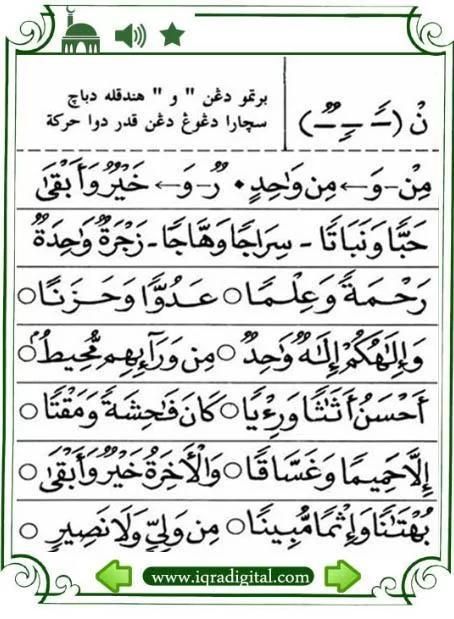 نْ (ــًــٍــٌ)
برتمو دڠن " و " هندقله دباچ
سچارا دڠوڠ دڠن قدر دوا حركة
مِنْ - وَ ← مِن وَاحِدٍ • رٌ - وَ ← خَيْرٌ وَأَبْقَىٰ
حَبًّا وَنَبَاتًا - سِرَاجًا وَهَّاجًا - زَجْرَةٌ وَاحِدَةٌ
رَحْمَةً وَعِلْمًا ○ عَدُوًّا وَحَزَنًا ○
وَإِلَٰهُكُمْ إِلَٰهٌ وَاحِدٌ ○ مِن وَرَآئِهِم مُّحِيطٌ ○
أَحْسَنُ أَثَٰثًا وَرِءْيًا ○ كَانَ فَٰحِشَةً وَمَقْتًا ○
إِلَّا حَمِيمًا وَغَسَّاقًا ○ وَالْأَخِرَةُ خَيْرٌ وَأَبْقَىٰ ○
بُهْتَٰنًا وَإِثْمًا مُّبِينًا ○ مِن وَلِيٍّ وَلَا نَصِيرٍ ○
www.iqradigital.com